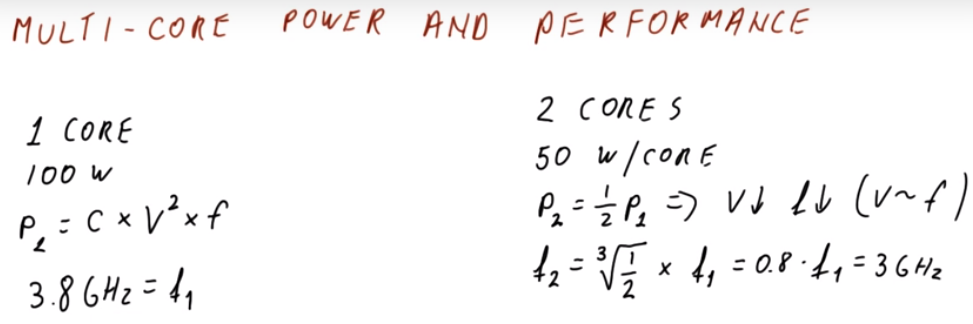 MULTI-CORE POWER AND PERFORMANCE
1 CORE
100 W
P₁ = C × V² × f
3.8 GHz = f₁
2 CORES
50 W/CORE
P₂ = ½ P₁ => V↓ f↓ (V~f)
f₂ = ∛(1/2) × f₁ = 0.8 · f₁ = 3 GHz